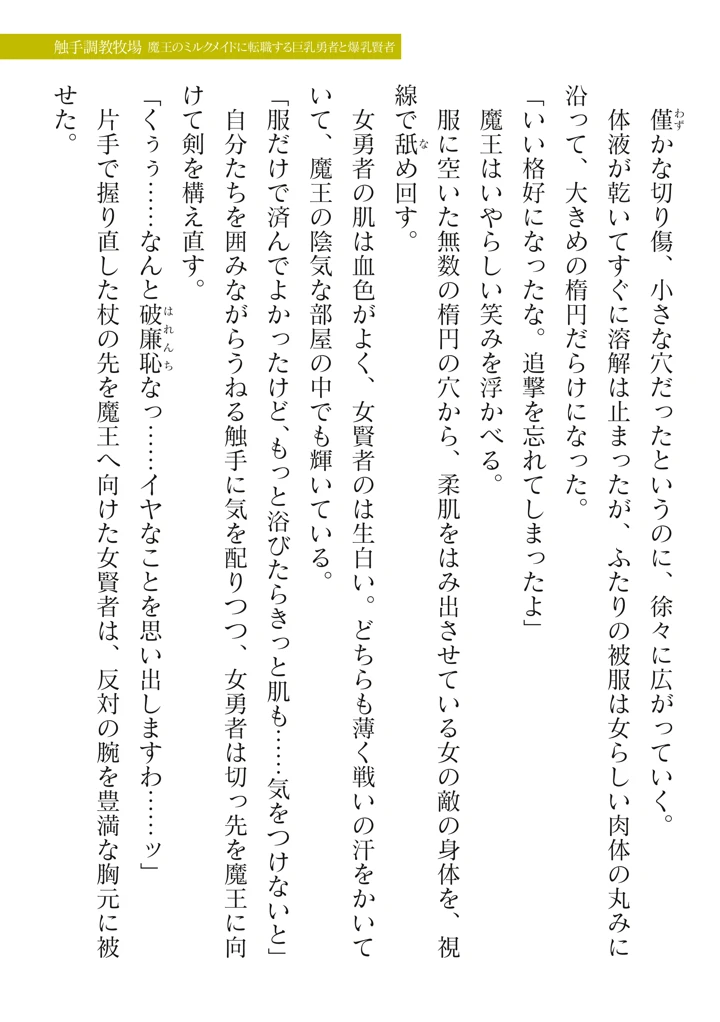 触手調教牧場 魔王のミルクメイドに転職する巨乳勇者と爆乳賢者
僅かな切り傷、小さな穴だったというのに、徐々に広がっていく。
体液が乾いてすぐに溶解は止まったが、ふたりの被服は女らしい肉体の丸みに
沿って、大きめの楕円だらけになった。
「いい格好になったな。追撃を忘れてしまったよ」
魔王はいやらしい笑みを浮かべる。
服に空いた無数の楕円の穴から、柔肌をはみ出させている女の敵の身体を、視
線で舐め回す。
女勇者の肌は血色がよく、女賢者のは生白い。どちらも薄く戦いの汗をかいて
いて、魔王の陰気な部屋の中でも輝いている。
「服だけで済んでよかったけど、もっと浴びたらきっと肌も……気をつけないと」
自分たちを囲みながらうねる触手に気を配りつつ、女勇者は切っ先を魔王に向
けて剣を構え直す。
「くぅぅ……なんと破廉恥なっ……イヤなことを思い出しますわ……ッ」
片手で握り直した杖の先を魔王へ向けた女賢者は、反対の腕を豊満な胸元に被
せた。
わず
な
はれんち